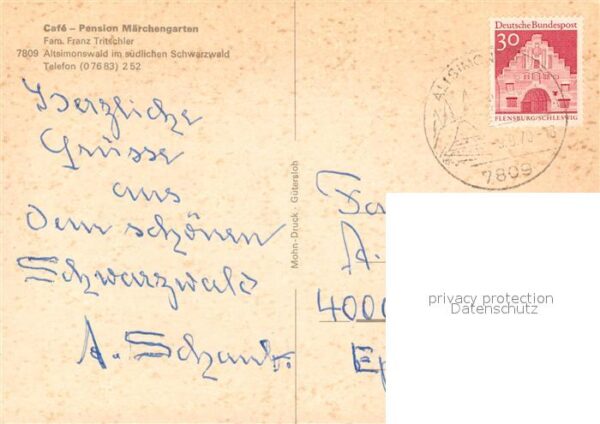 Café – Pension Märchengarten
Fam. Franz Tritschler
7809 Altsimonswald im südlichen Schwarzwald
Telefon (0 76 83) 2 52
Herzliche
Grüsse
aus
dem schönen
Schwarzwald
A. Schank.
Mohn-Druck · Gütersloh
Deutsche Bundespost
30
FLENSBURG/SCHLESWIG
ALTSIMO
7809
Fa
A.
4000
privacy protection
Datenschutz